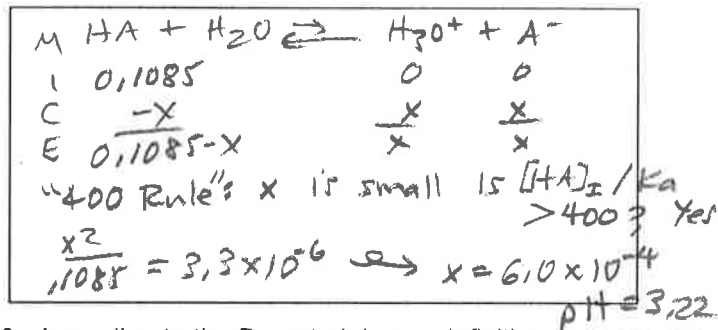 M HA + H₂O ⇌ H₃O⁺ + A⁻
I 0,1085 0 0
C -x x x
E 0,1085-x x x
"400 Rule": x is small is [HA]I / Ka
>400? Yes
x²/,1085 = 3,3×10⁻⁶ → x = 6,0×10⁻⁴
pH = 3,22